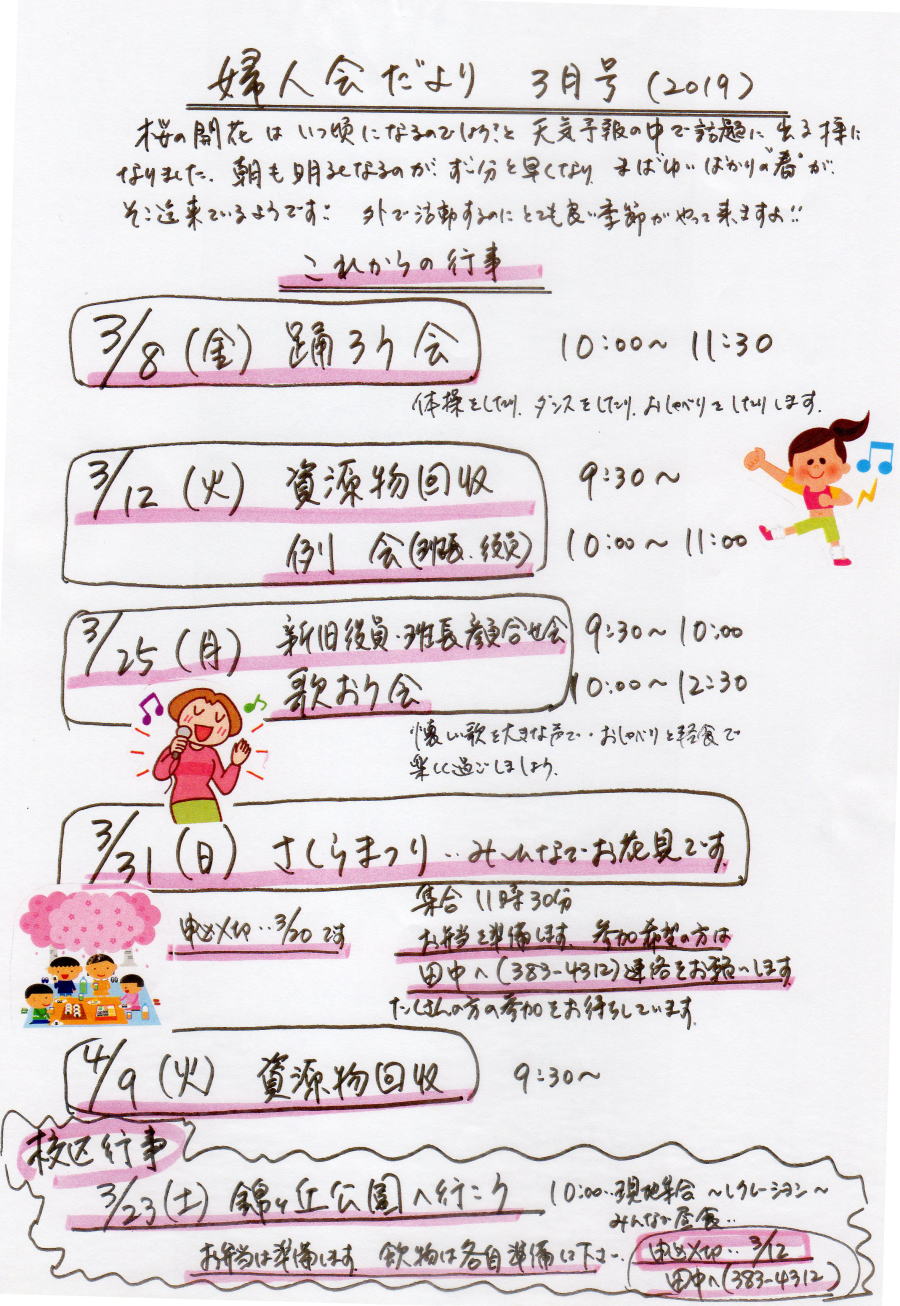 婦人会だより 3月号(2019)
桜の開花はいつ頃になるのでしょう?と天気予報の中で話題に出る様に
なりました。朝も明るくなるのがずい分と早くなり、まばゆいばかりの"春"が
そこ迄来ているようです!! 外で活動するのにとても良い季節がやって来ますよ!!
これからの行事
3/8(金) 踊ろう会 10:00~11:30
体操をしたり、ダンスをしたり、おしゃべりをしたりします。
3/12(火) 資源物回収 9:30~
例 会(班長・役員) 10:00~11:00
3/25(月) 新旧役員・班長顔合せ会 9:30~10:00
歌おう会 10:00~12:30
懐しい歌を大きな声で・・おしゃべりと軽食で
楽しく過ごしましょう。
3/31(日) さくらまつり・・みんなでお花見です。
集合 11時30分
申込〆切・・3/20です
お弁当を準備します。参加希望の方は
田中へ(383-4312)連絡をお願いします
たくさんの方の参加をお待ちしています。
4/9(火) 資源物回収 9:30~
校区行事
3/23(土) 錦ヶ丘公園へ行こう 10:00・・現地集合 ~レクレーション~
みんなで昼食・・
お弁当は準備します。飲物は各自準備して下さい。
申込〆切・・3/12
田中へ(383-4312)